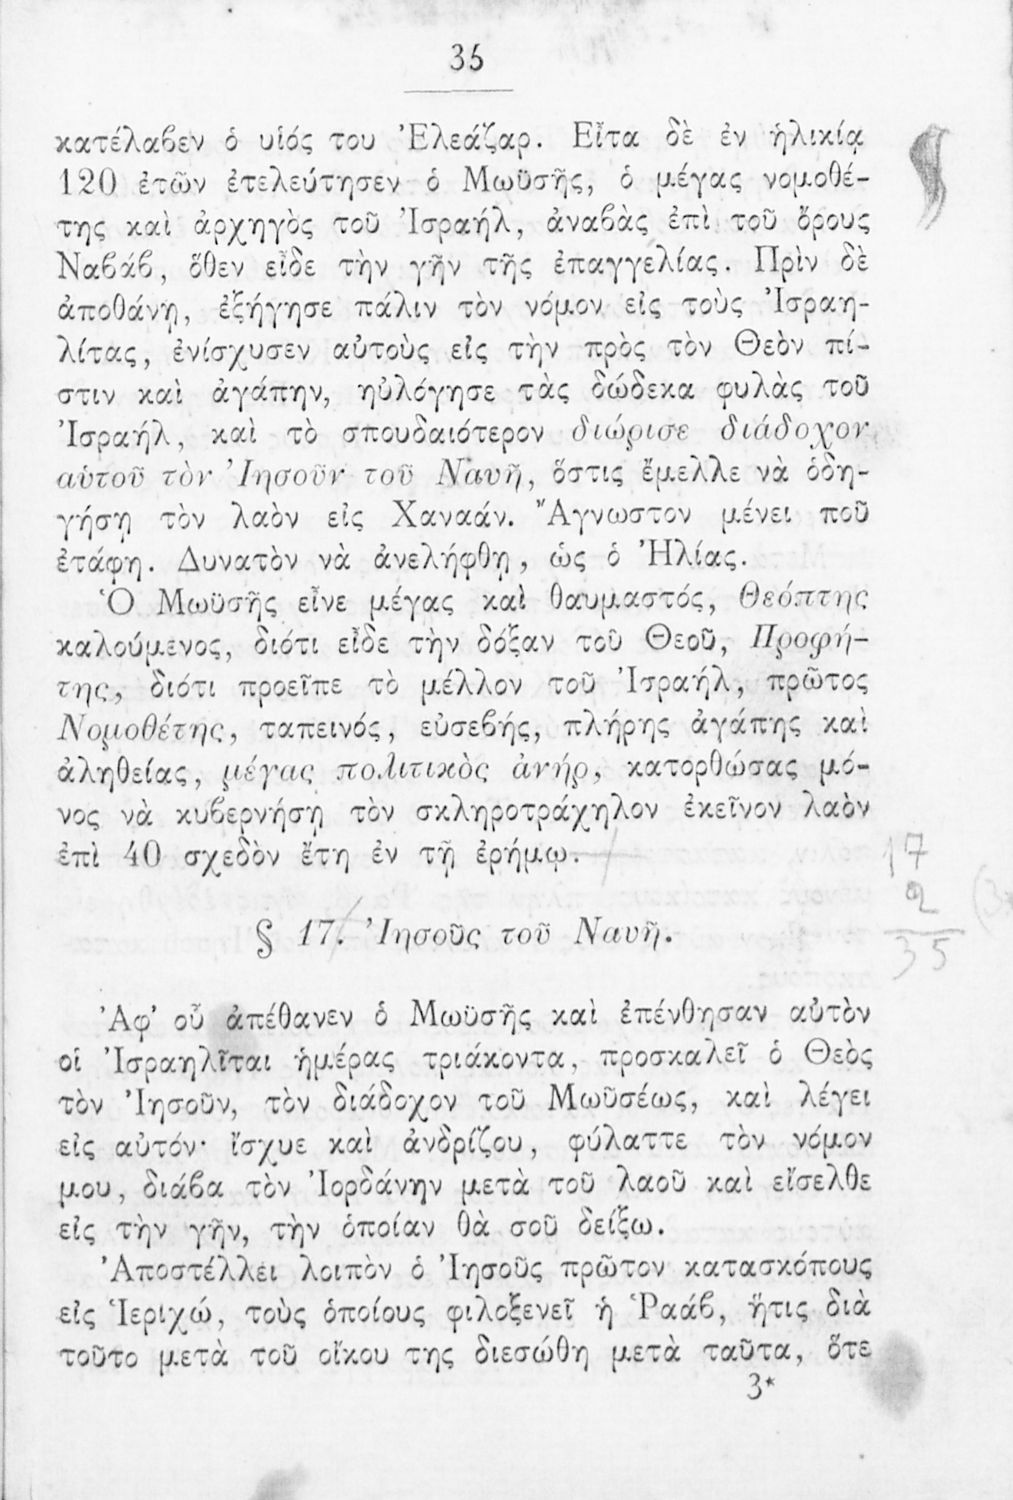 35
κατέλαβεν ὁ υἱός του Ἐλεάζαρ. Εἶτα δὲ ἐν ἡλικίᾳ
120 ἐτῶν ἐτελεύτησεν ὁ Μωϋσῆς, ὁ μέγας νομοθέ-
της καὶ ἀρχηγὸς τοῦ Ἰσραήλ, ἀναβὰς ἐπὶ τοῦ ὄρους
Ναβάβ, ὅθεν εἶδε τὴν γῆν τῆς ἐπαγγελίας. Πρὶν δὲ
ἀποθάνῃ, ἐξήγησε πάλιν τὸν νόμον εἰς τοὺς Ἰσραη-
λίτας, ἐνίσχυσεν αὐτοὺς εἰς τὴν πρὸς τὸν Θεὸν πί-
στιν καὶ ἀγάπην, ηὐλόγησε τὰς δώδεκα φυλὰς τοῦ
Ἰσραήλ, καὶ τὸ σπουδαιότερον διώρισε διάδοχον
αὑτοῦ τὸν Ἰησοῦν τοῦ Ναυῆ, ὅστις ἔμελλε νὰ ὁδη-
γήσῃ τὸν λαὸν εἰς Χαναάν. Ἄγνωστον μένει ποῦ
ἐτάφη. Δυνατὸν νὰ ἀνελήφθη, ὡς ὁ Ἠλίας.
Ὁ Μωϋσῆς εἶνε μέγας καὶ θαυμαστός, Θεόπτης
καλούμενος, διότι εἶδε τὴν δόξαν τοῦ Θεοῦ, Προφή-
της, διότι προεῖπε τὸ μέλλον τοῦ Ἰσραήλ, πρῶτος
Νομοθέτης, ταπεινός, εὐσεβής, πλήρης ἀγάπης καὶ
ἀληθείας, μέγας πολιτικὸς ἀνήρ, κατορθώσας μό-
νος νὰ κυβερνήσῃ τὸν σκληροτράχηλον ἐκεῖνον λαὸν
ἐπὶ 40 σχεδὸν ἔτη ἐν τῇ ἐρήμῳ.
17
2
35
§ 17. Ἰησοῦς τοῦ Ναυῆ.
Ἀφ' οὗ ἀπέθανεν ὁ Μωϋσῆς καὶ ἐπένθησαν αὐτὸν
οἱ Ἰσραηλῖται ἡμέρας τριάκοντα, προσκαλεῖ ὁ Θεὸς
τὸν Ἰησοῦν, τὸν διάδοχον τοῦ Μωϋσέως, καὶ λέγει
εἰς αὐτόν· ἴσχυε καὶ ἀνδρίζου, φύλαττε τὸν νόμον
μου, διάβα τὸν Ἰορδάνην μετὰ τοῦ λαοῦ καὶ εἴσελθε
εἰς τὴν γῆν, τὴν ὁποίαν θὰ σοῦ δείξω.
Ἀποστέλλει λοιπὸν ὁ Ἰησοῦς πρῶτον κατασκόπους
εἰς Ἱεριχώ, τοὺς ὁποίους φιλοξενεῖ ἡ Ῥαάβ, ἥτις διὰ
τοῦτο μετὰ τοῦ οἴκου της διεσώθη μετὰ ταῦτα, ὅτε
3*